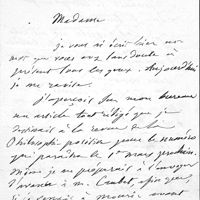 Madame
je vous ai écrit hier un
mot que vous avez sans doute à
présent sous les yeux. Aujourd'hui
je me ravise.
J'aperçois sur mon bureau
un article tout rédigé que je
destinais à la revue de la
Philosophie positive pour le numéro
qui paraîtra le 1er mars prochain.
même je me préparais à l'envoyer
d'avance à M.